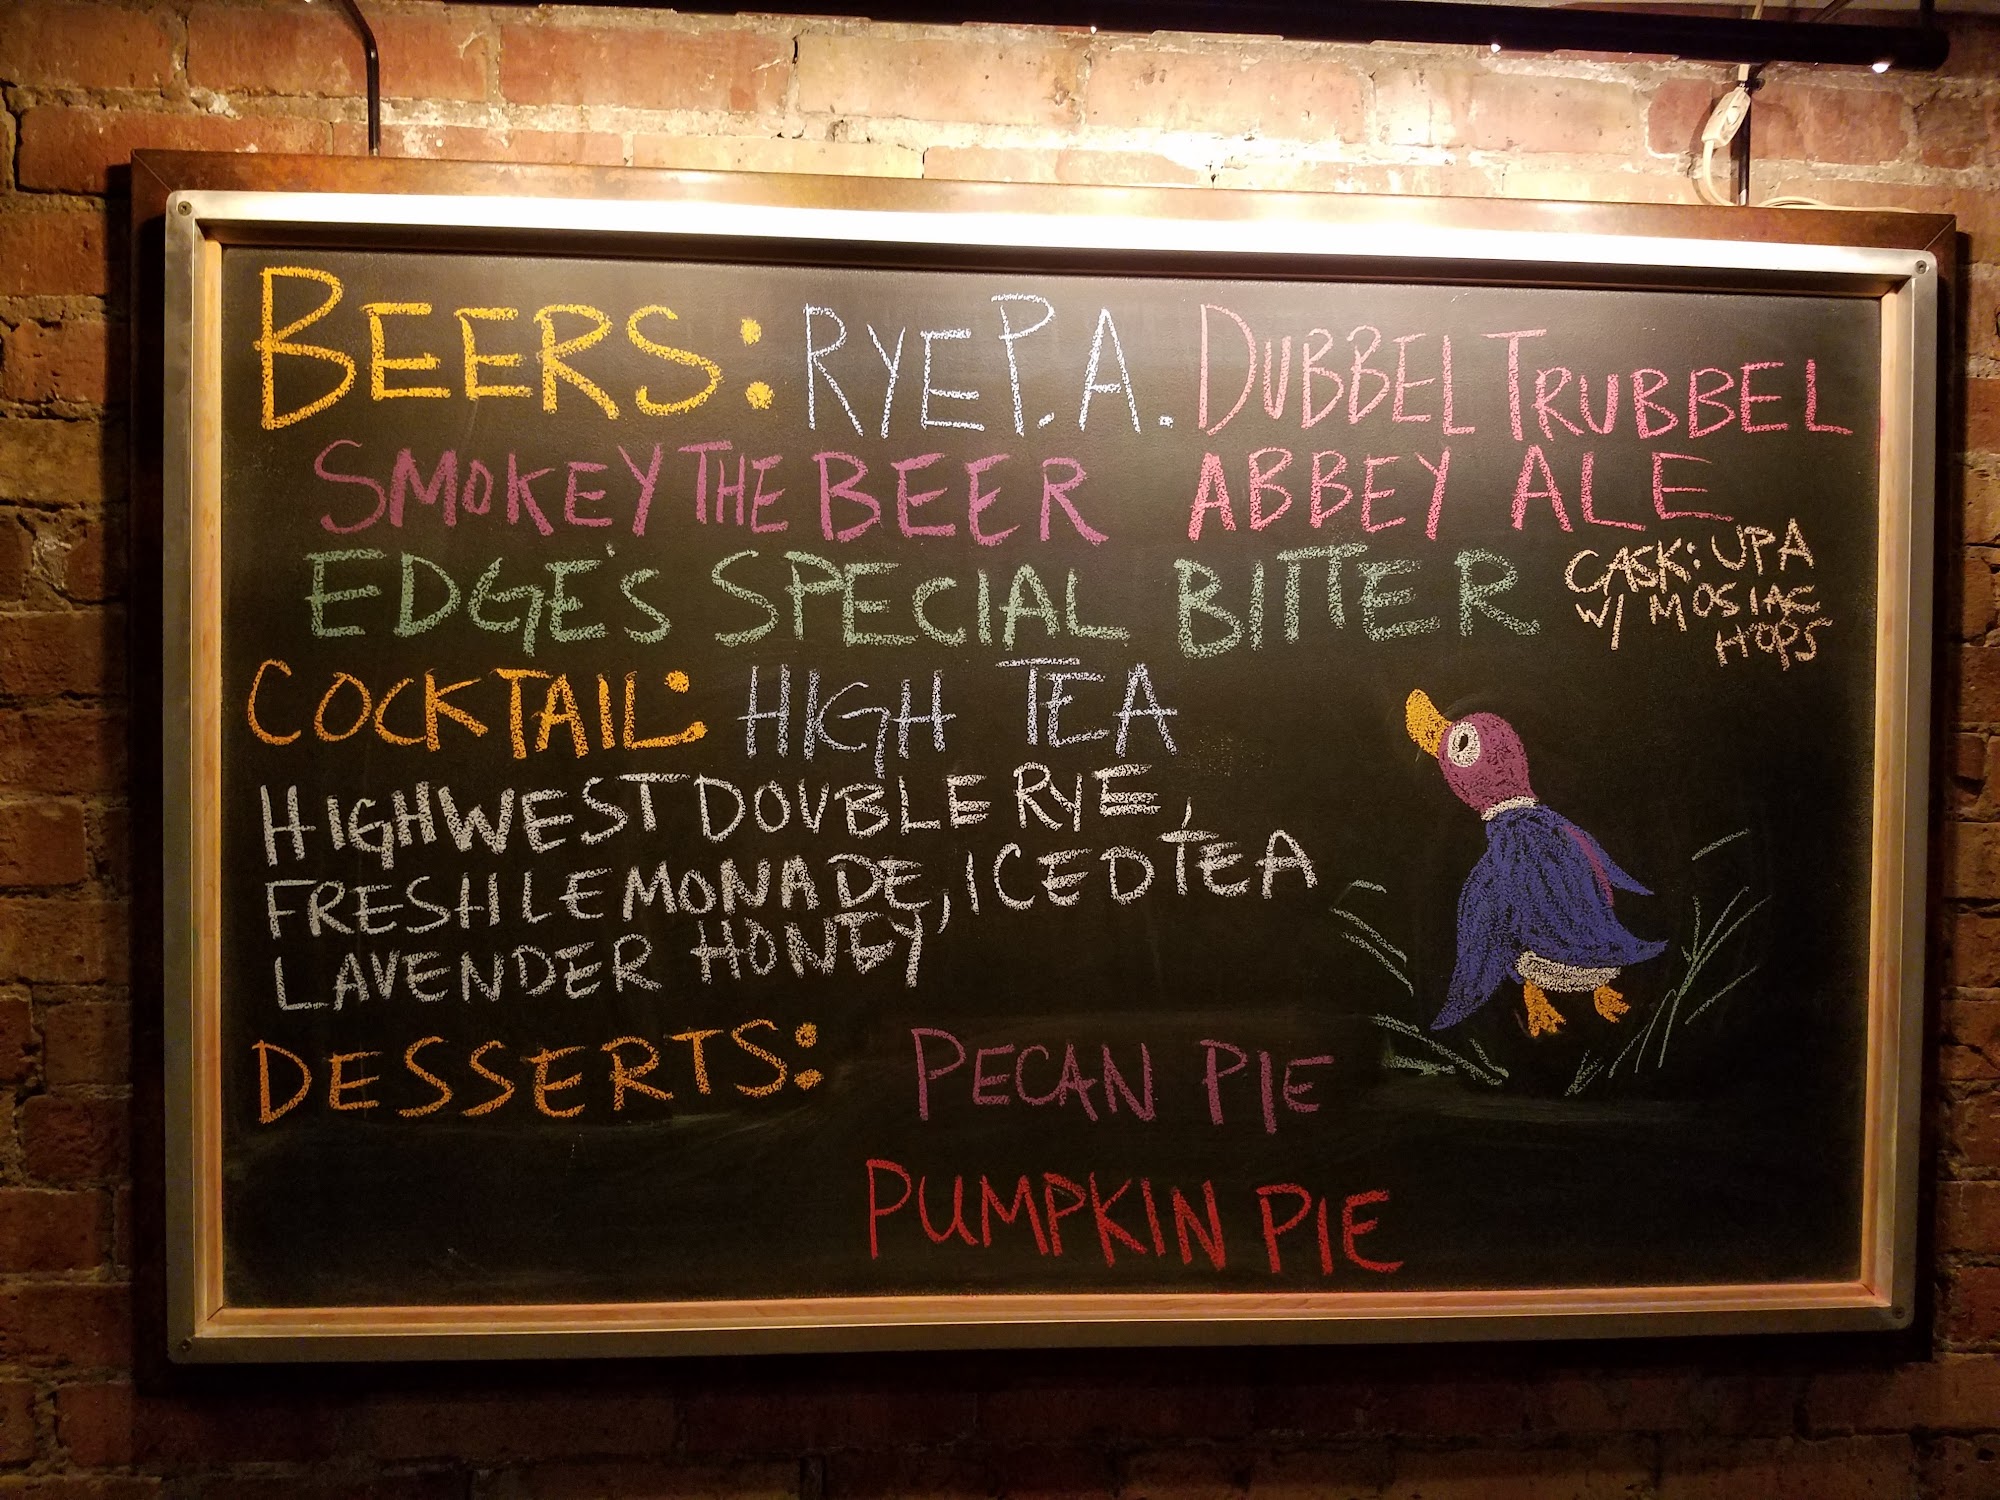 BEERS: RYE P.A. DUBBEL TRUBBEL
SMOKEY THE BEER ABBEY ALE
EDGE'S SPECIAL BITTER
CASK: UPA
W/ MOSIAC
HOPS
COCKTAIL: HIGH TEA
HIGH WEST DOUBLE RYE,
FRESH LEMONADE, ICED TEA
LAVENDER HONEY
DESSERTS: PECAN PIE
PUMPKIN PIE